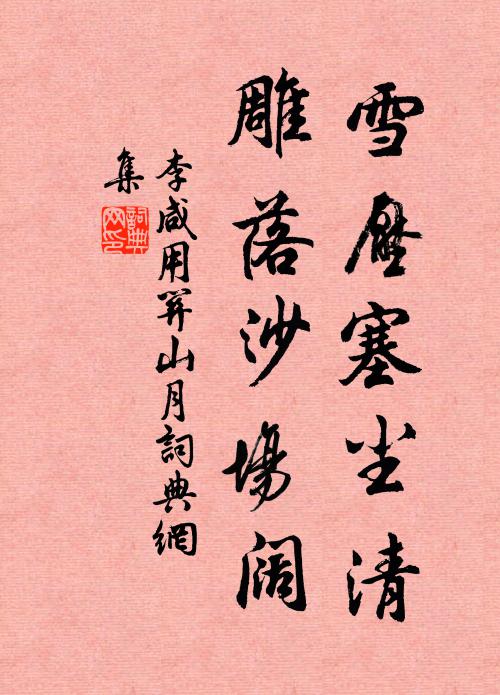 雪壓塞尘清
雕落沙場阔
李咸用關山月詞典網
集
詞典
网印